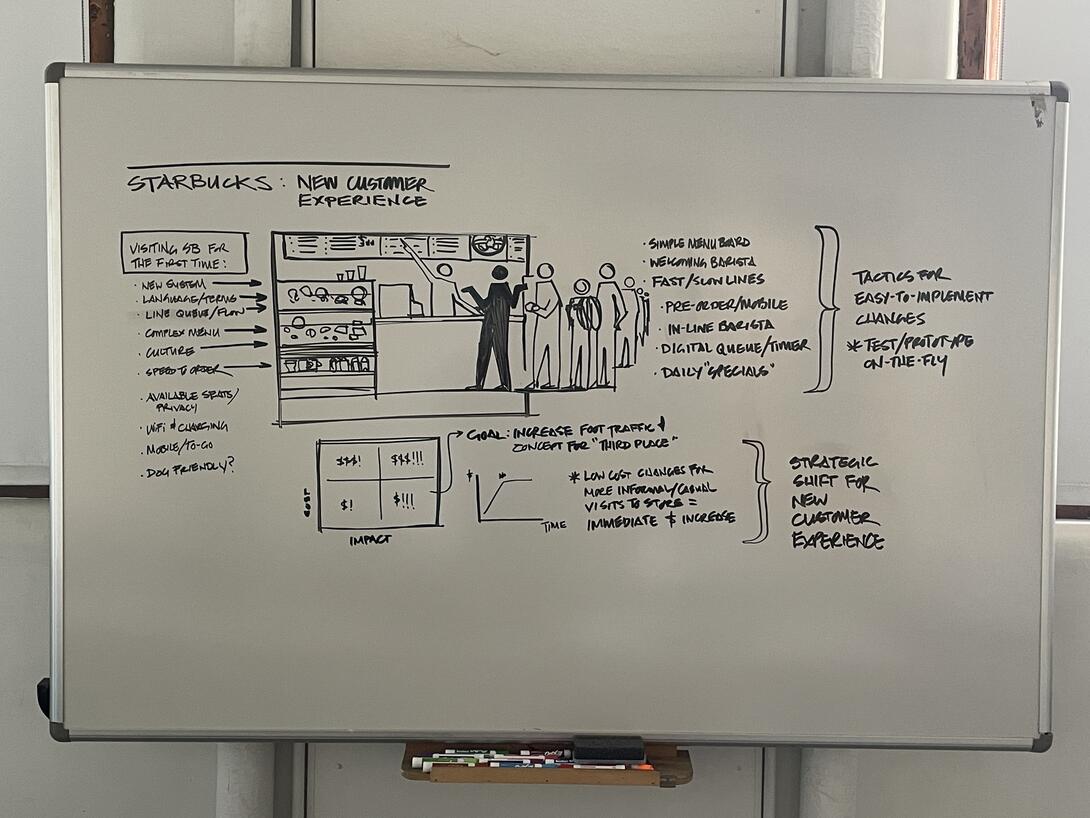 STARBUCKS: NEW CUSTOMER
EXPERIENCE
VISITING SB FOR
THE FIRST TIME:
· NEW SYSTEM
· LANGUAGE/TERMS
· LINE QUEUE/FLOW
· COMPLEX MENU
· CULTURE
· SPEED TO ORDER
· AVAILABLE SEATS/
PRIVACY
· WIFI & CHARGING
· MOBILE/TO-GO
· DOG FRIENDLY?
· SIMPLE MENU BOARD
· WELCOMING BARISTA
· FAST/SLOW LINES
· PRE-ORDER/MOBILE
· IN-LINE BARISTA
· DIGITAL QUEUE/TIMER
· DAILY "SPECIALS"
TACTICS FOR
EASY-TO-IMPLEMENT
CHANGES
* TEST/PROTOTYPE
ON-THE-FLY
$$$! $$$!!!
$! $!!!
COST
IMPACT
GOAL: INCREASE FOOT TRAFFIC &
CONCEPT FOR "THIRD PLACE"
$
TIME
* LOW COST CHANGES FOR
MORE INFORMAL/CASUAL
VISITS TO STORE =
IMMEDIATE $ INCREASE
STRATEGIC
SHIFT FOR
NEW
CUSTOMER
EXPERIENCE